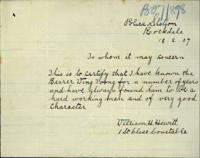 Police Station
Rockdale
18.2.07
To whom it may concern
This is to certify that I have known the
Bearer for a number of years
and have always found him to be a
hard working man and of very good
character
William H. Hewitt
1st Class Constable